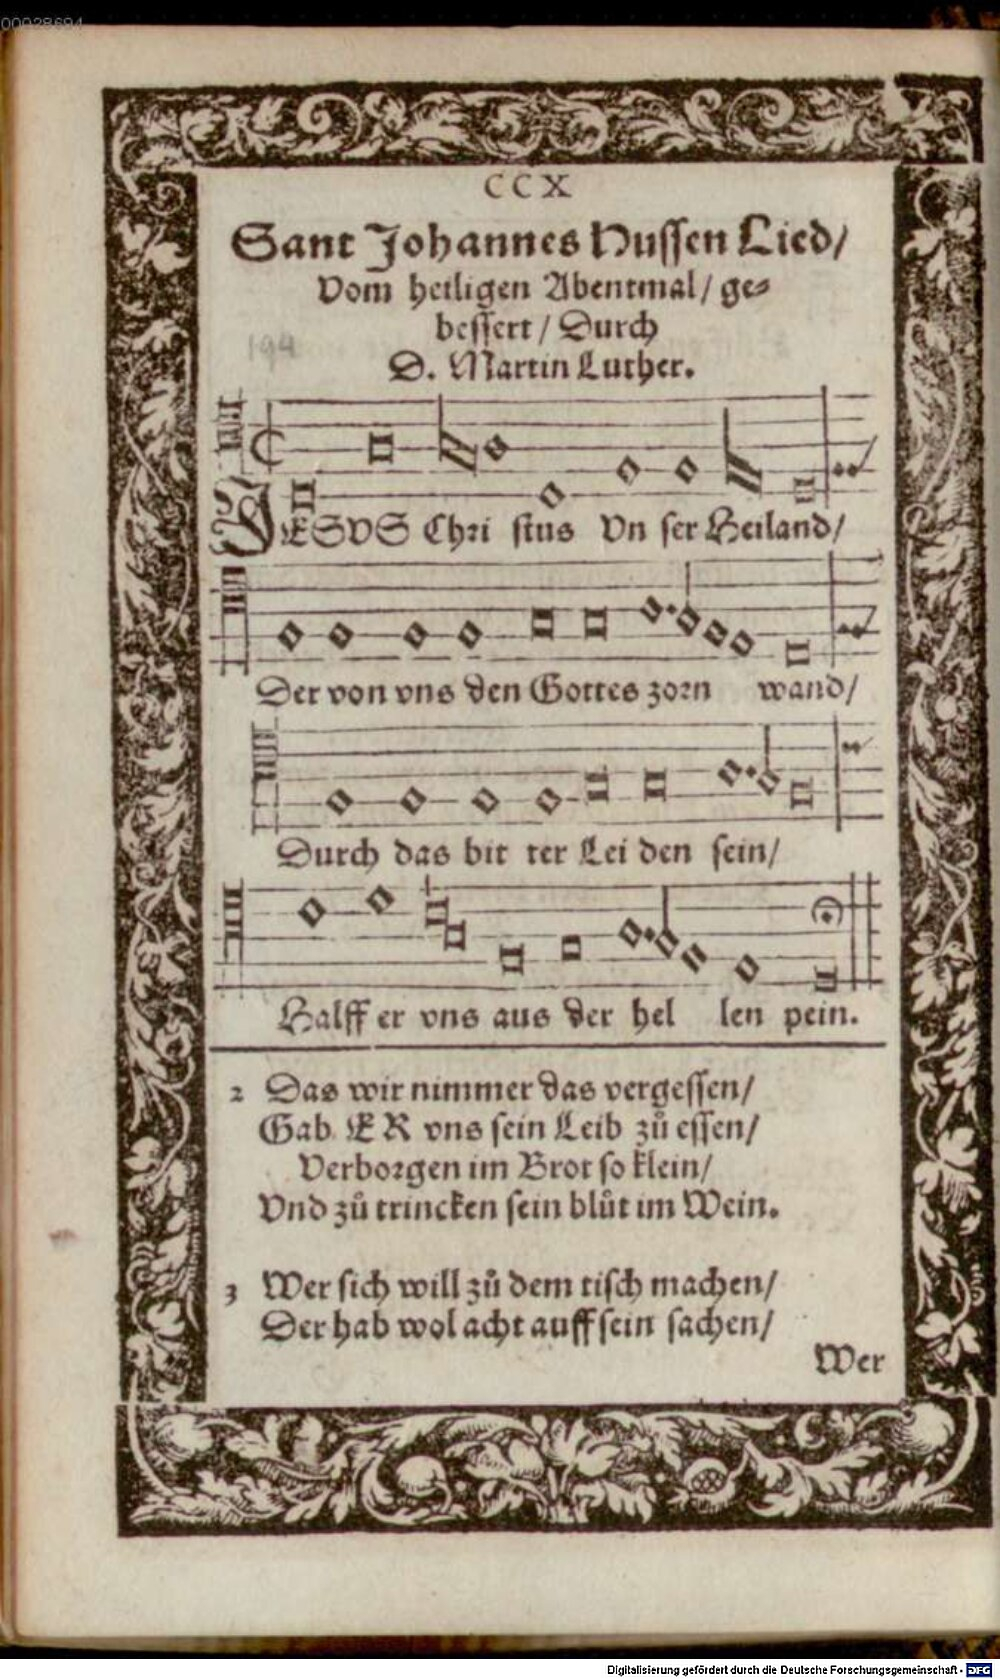 00028694
CCX
Sant Johannes Hussen Lied/
Vom heiligen Abentmal/ ge⸗
bessert / Durch
194
D. Martin Luther.
JESVS Chri stus Vn ser Heiland/
Der von vns den Gottes zorn wand/
Durch das bit ter Lei den sein/
Halff er vns aus der hel len pein.
2 Das wir nimmer das vergessen/
Gab ER vns sein Leib zů essen/
Verborgen im Brot so klein/
Vnd zů trincken sein blůt im Wein.
3 Wer sich will zů dem tisch machen/
Der hab wol acht auff sein sachen/
Wer
Digitalisierung gefördert durch die Deutsche Forschungsgemeinschaft - DFG